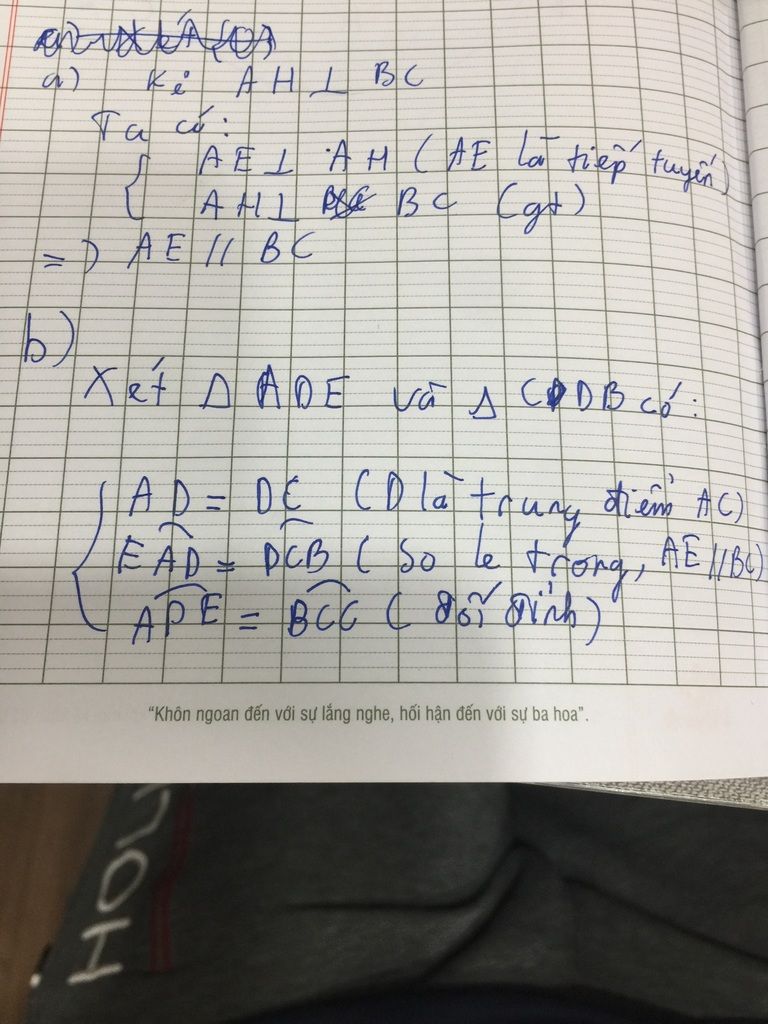 a) Kẻ AH ⊥ BC
Ta có:
{ AE ⊥ AH ( AE là tiếp tuyến)
AH ⊥ BC (gt)
=> AE // BC
b)
Xét Δ ADE và Δ CDB có:
{ AD = DC (D là trung điểm AC)
EAD = DCB ( so le trong, AE // BC)
ADE = BCC ( đối đỉnh)
"Khôn ngoan đến với sự lắng nghe, hối hận đến với sự ba hoa".
HON